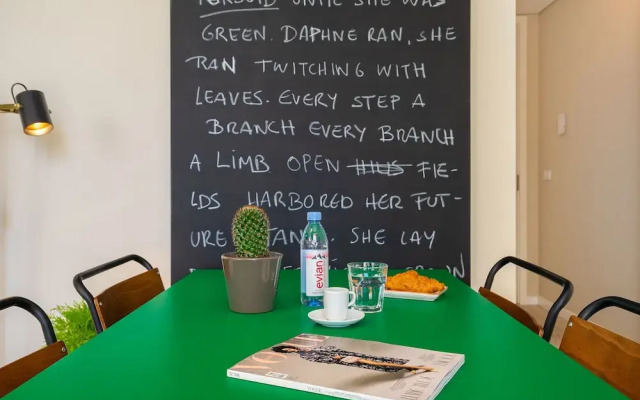 UNTIL SHE WAS
GREEN. DAPHNE RAN, SHE
RAN TWITCHING WITH
LEAVES. EVERY STEP A
BRANCH EVERY BRANCH
A LIMB OPEN THIS FIE-
LDS HARBORED HER FUT-
URE. SHE LAY
evian